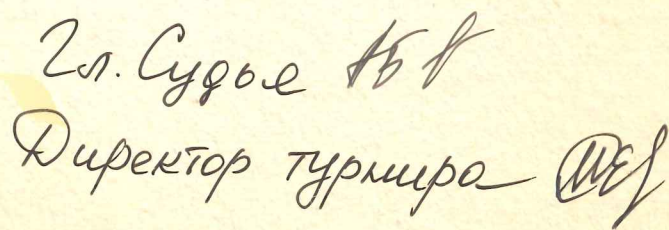 Гл. Судья
Директор турнира